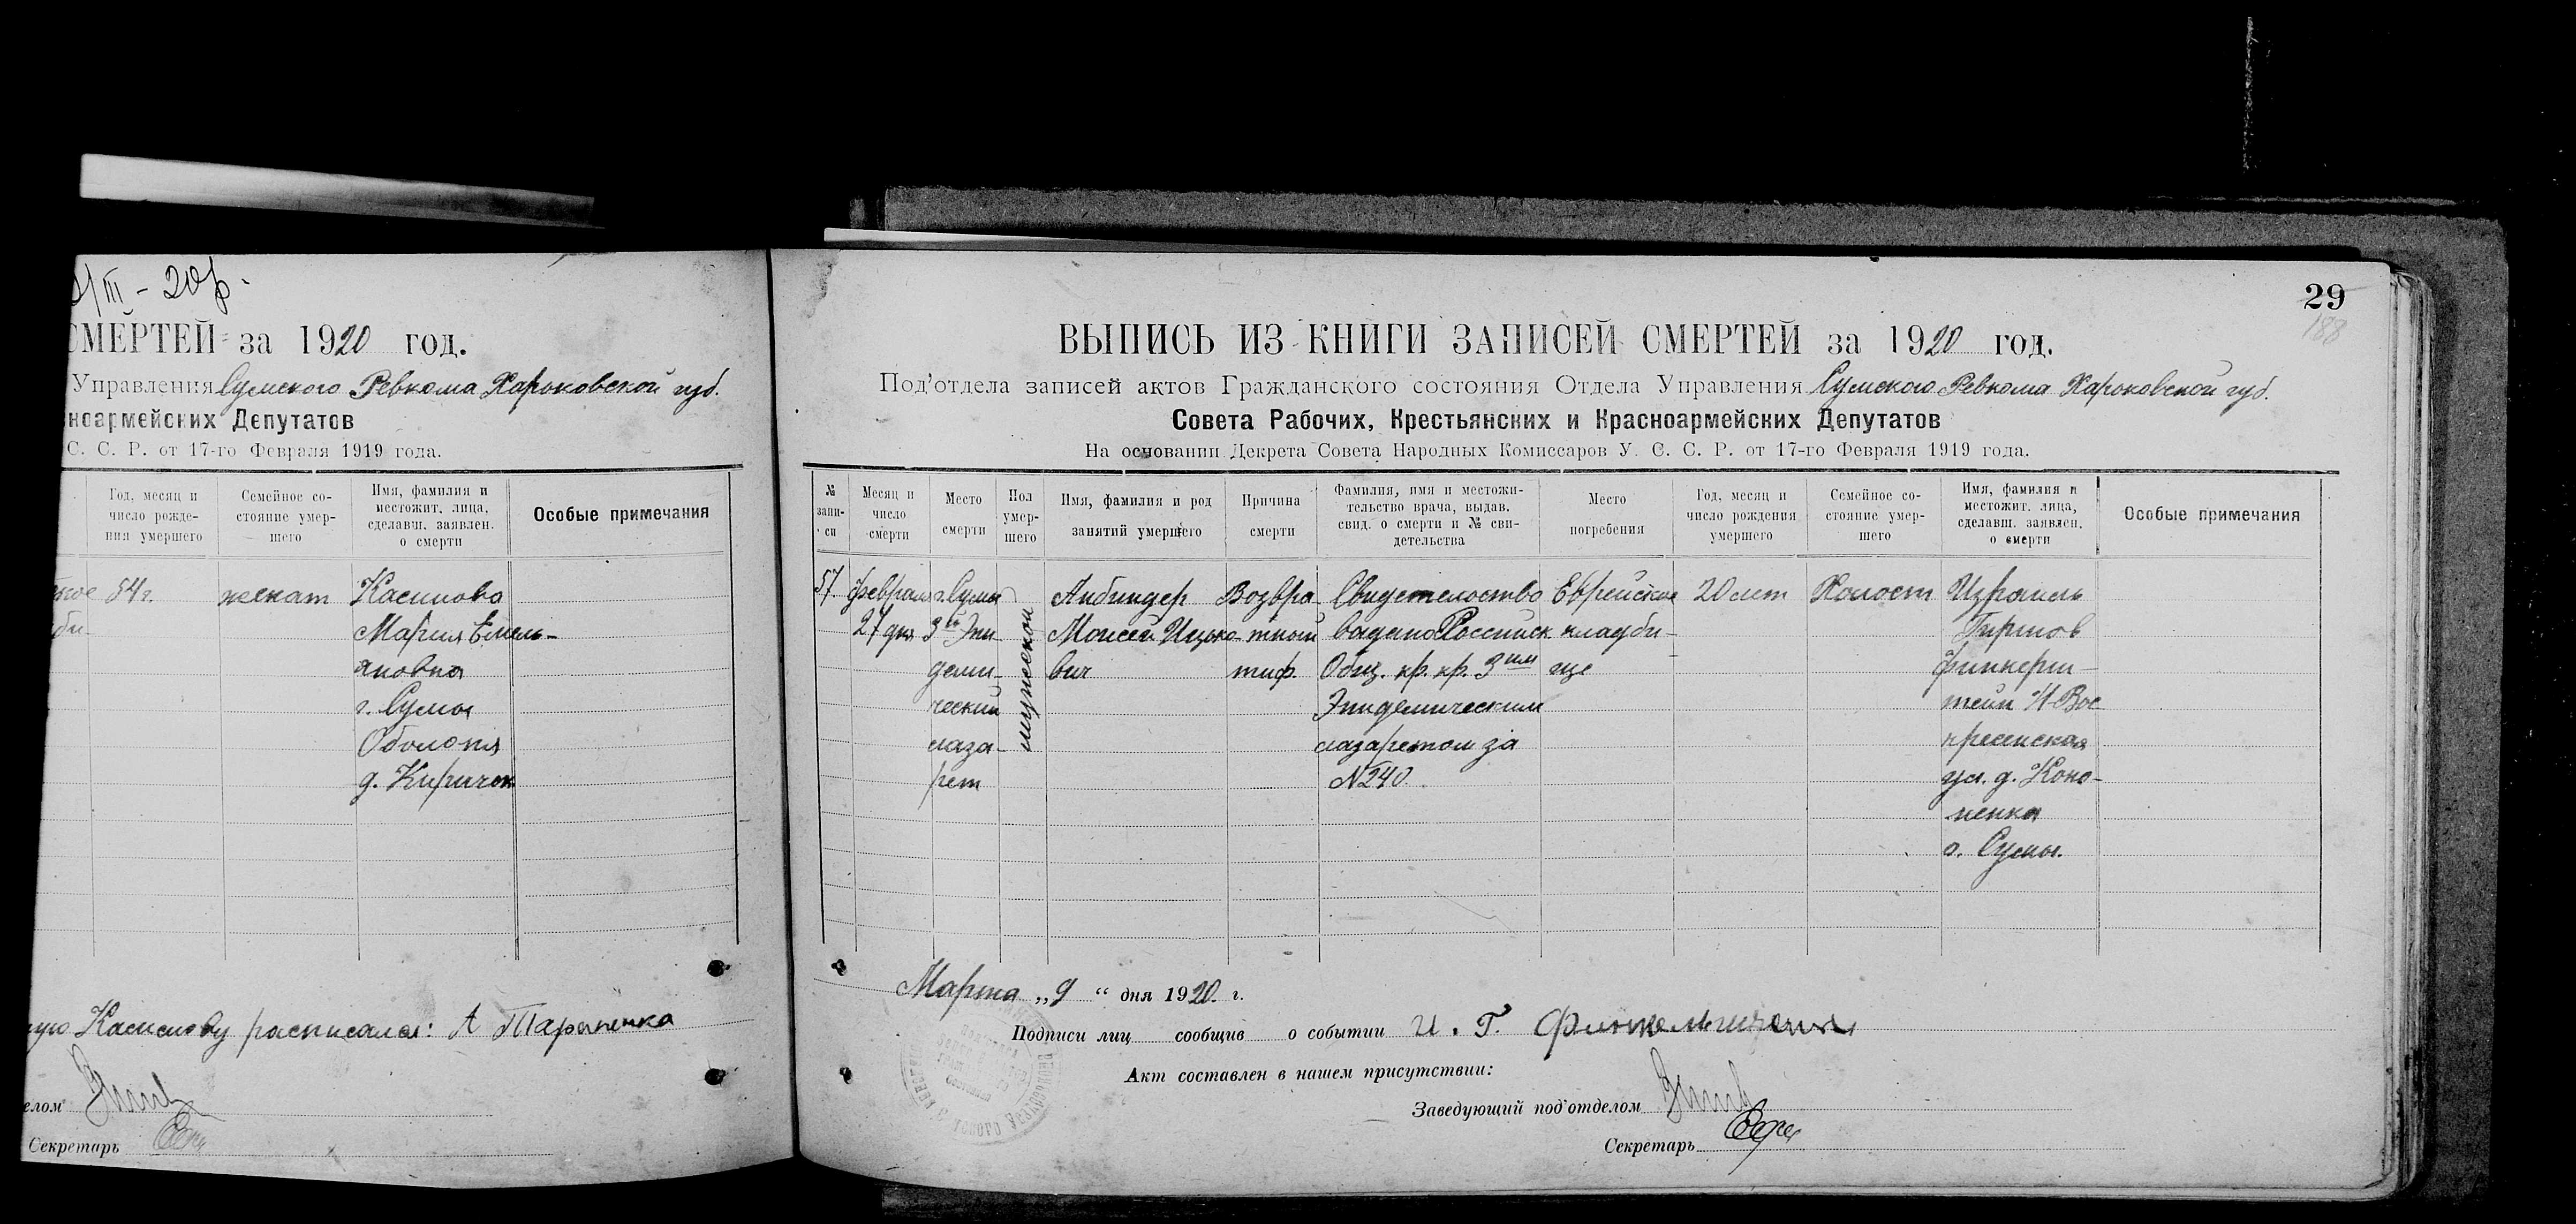 /III - 20 г.
СМЕРТЕЙ за 1920 год.
Управления Сумского Ревкома Харьковской губ.
ноармейских Депутатов
С. С. Р. от 17-го Февраля 1919 года.
Год, месяц и
число рожде-
ния умершего
Семейное со-
стояние умер-
шего
Имя, фамилия и
местожит. лица,
сделавш. заявлен.
о смерти
Особые примечания
54 г.
женат
Касилова
Мария Емель-
яновна
г. Сумы
Оболоня
д. Киричек
Касилову расписался: А Тарапенка
елом
Секретарь
29
188
ВЫПИСЬ ИЗ КНИГИ ЗАПИСЕЙ СМЕРТЕЙ за 1920 год.
Под'отдела записей актов Гражданского состояния Отдела Управления Сумского Ревкома Харьковской губ.
Совета Рабочих, Крестьянских и Красноармейских Депутатов
На основании Декрета Совета Народных Комиссаров У. С. С. Р. от 17-го Февраля 1919 года.
№
запи-
си
Месяц и
число
смерти
Место
смерти
Пол
умер-
шего
Имя, фамилия и род
занятий умершего
Причина
смерти
Фамилия, имя и местожи-
тельство врача, выдав.
свид. о смерти и № сви-
детельства
Место
погребения
Год, месяц и
число рождения
умершего
Семейное со-
стояние умер-
шего
Имя, фамилия и
местожит. лица,
сделавш. заявлен.
о смерти
Особые примечания
57
февраля
27 дня
г. Сумы
3й Эпи-
деми-
ческий
лаза-
рет
мужской
Анбиндер
Моисей Ицко-
вич
Возвра
тный
тиф.
Свидетельство
выдано Российск.
Общ. кр. кр. 3им
Эпидемическим
лазаретом за
№ 240
Еврейское
кладби-
ще
20 лет
Холост
Израиль
Гиршов
Финкерш-
тейн Н-Вос
кресенская
ул. д. Коно-
ненка
г. Сумы.
Марта „9“ дня 1920 г.
Подписи лиц сообщив о событии И. Г.
Акт составлен в нашем присутствии:
Заведующий под'отделом
Секретарь